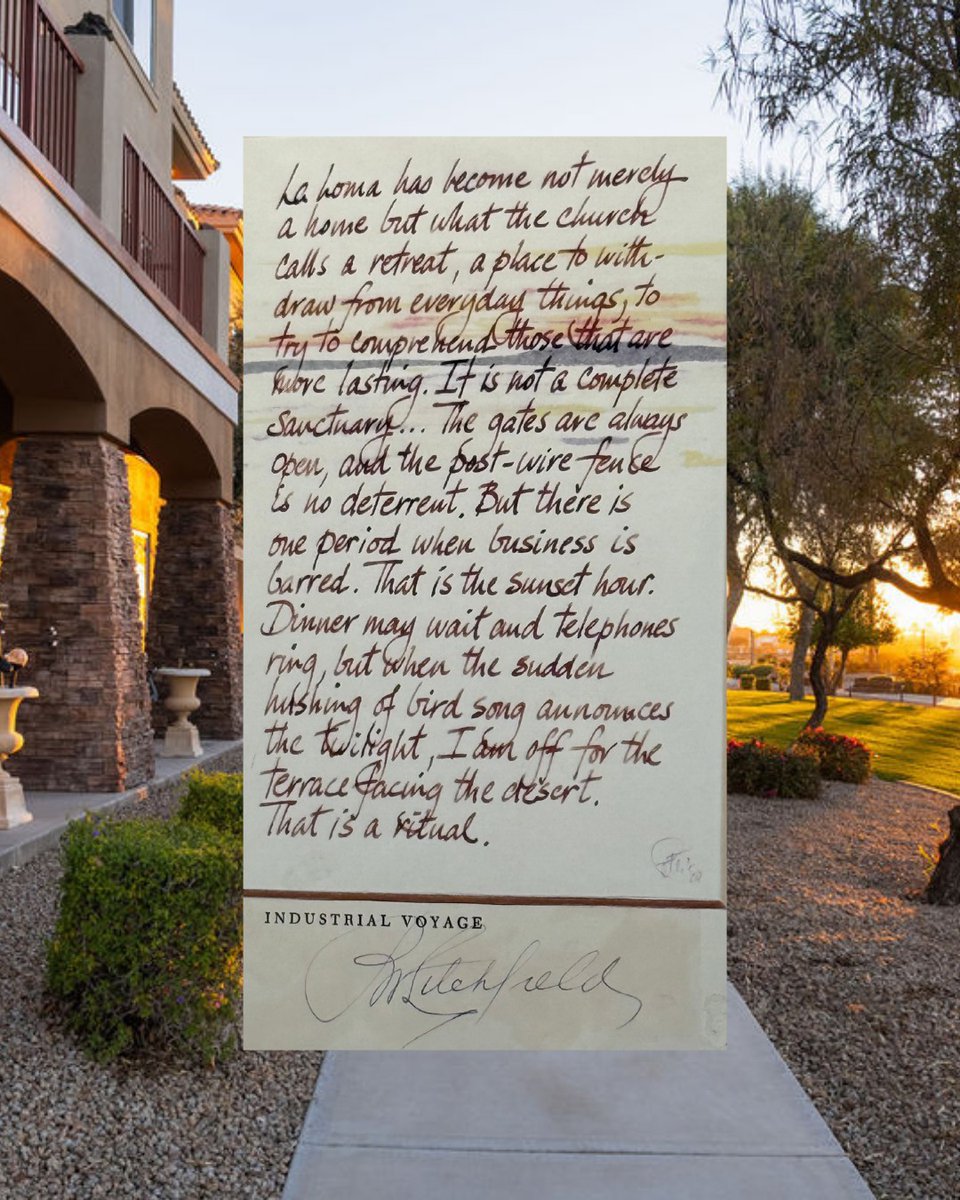 La Loma has become not merely
a home but what the church
calls a retreat, a place to with-
draw from everyday things, to
try to comprehend those that are
more lasting. It is not a complete
sanctuary... The gates are always
open, and the post-wire fence
is no deterrent. But there is
one period when business is
barred. That is the sunset hour.
Dinner may wait and telephones
ring, but when the sudden
hushing of bird song announces
the twilight, I am off for the
terrace facing the desert.
That is a ritual.
INDUSTRIAL VOYAGE
PW Litchfield